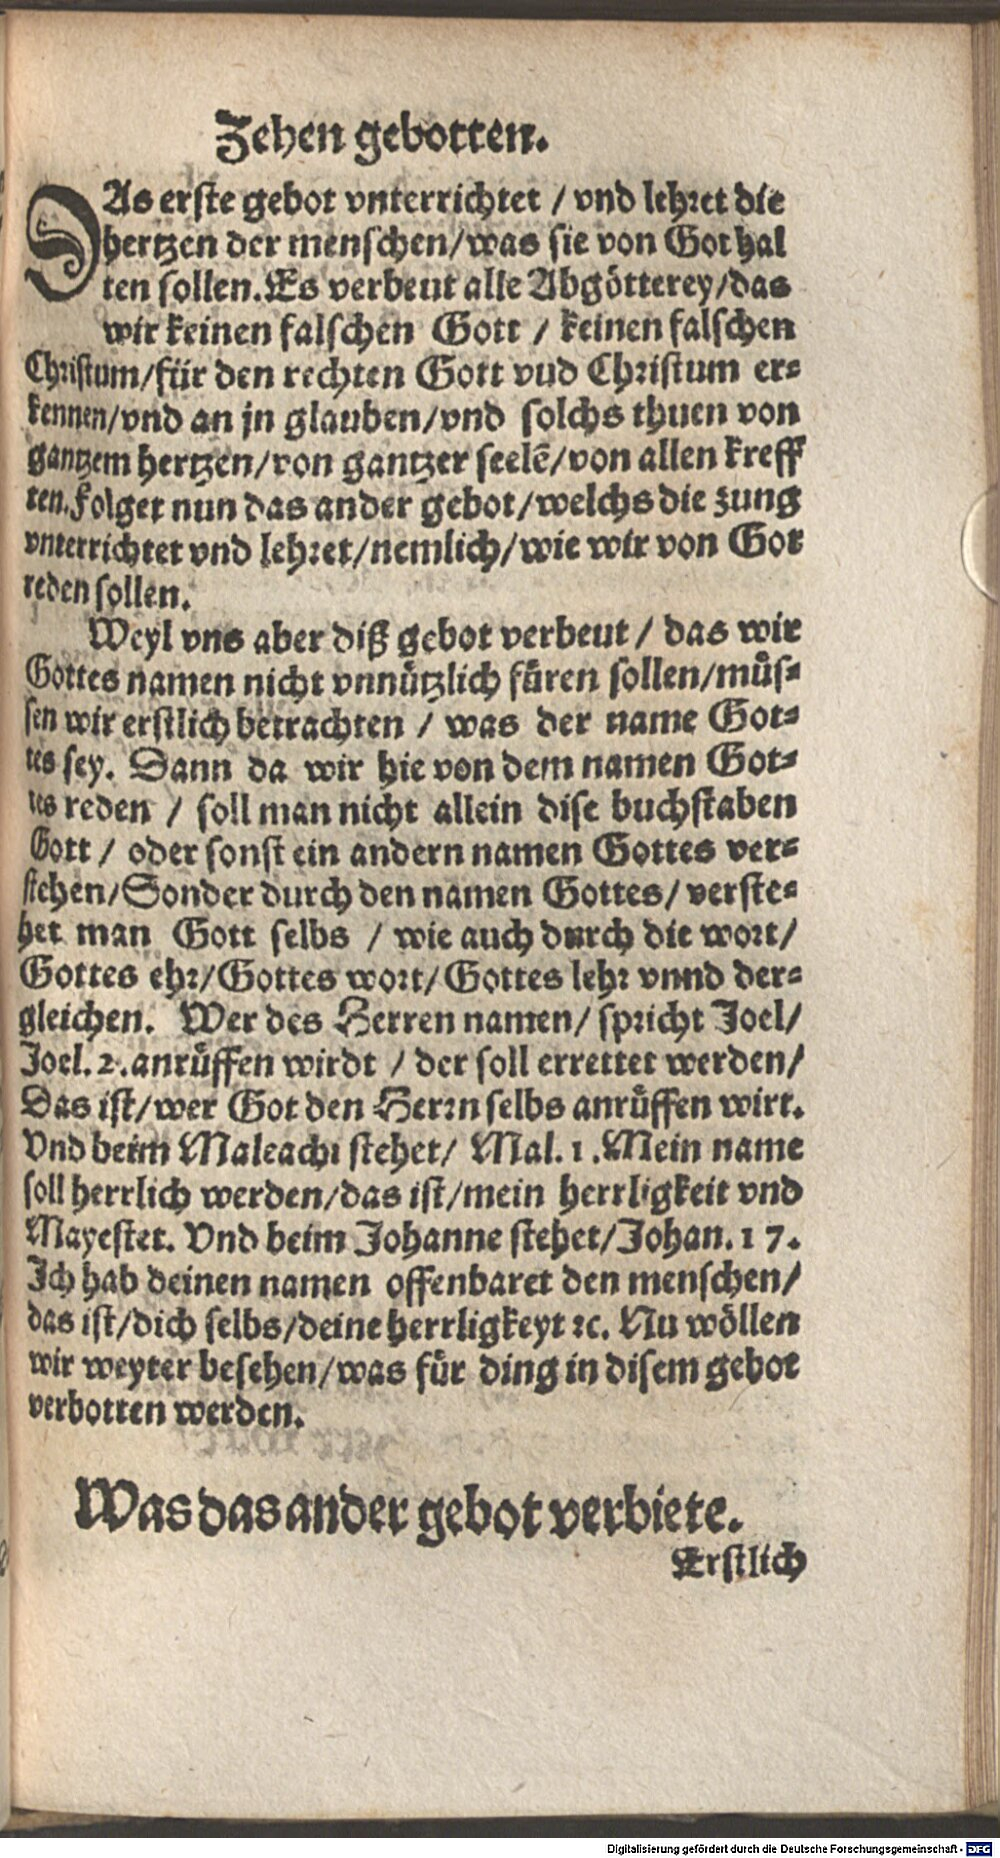 Zehen gebotten.
DAs erste gebot vnterrichtet / vnd lehret die
hertzen der menschen/was sie von Got hal
ten sollen.Es verbeut alle Abgötterey/das
wir keinen falschen Gott / keinen falschen
Christum/für den rechten Gott vud Christum er⸗
kennen/vnd an jn glauben/vnd solchs thuen von
gantzem hertzen/von gantzer seelē/von allen kreff
ten.Folget nun das ander gebot/welchs die zung
vnterrichtet vnd lehret/nemlich/wie wir von Got
reden sollen.
Weyl vns aber diß gebot verbeut / das wir
Gottes namen nicht vnnützlich füren sollen/müs⸗
sen wir erstlich betrachten / was der name Got⸗
tes sey. Dann da wir hie von dem namen Got⸗
tes reden / soll man nicht allein dise buchstaben
Gott / oder sonst ein andern namen Gottes ver⸗
stehen/Sonder durch den namen Gottes/ verste⸗
het man Gott selbs / wie auch durch die wort/
Gottes ehr/Gottes wort/Gottes lehr vnnd der⸗
gleichen. Wer des Herren namen/ spricht Joel/
Joel. 2.anrüffen wirdt / der soll errettet werden/
Das ist/wer Got den Herrn selbs anrüffen wirt.
Vnd beim Maleachi stehet/ Mal. 1 .Mein name
soll herrlich werden/das ist/mein herrligkeit vnd
Mayestet. Vnd beim Johanne stehet/Johan. 1 7.
Ich hab deinen namen offenbaret den menschen/
das ist/dich selbs/deine herrligkeyt ꝛc. Nu wöllen
wir weyter besehen/was für ding in disem gebot
verbotten werden.
Was das ander gebot verbiete.
Erstlich
Digitalisierung gefördert durch die Deutsche Forschungsgemeinschaft - DFG